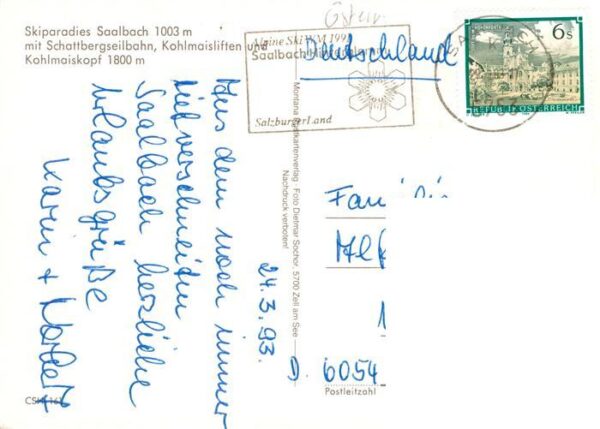 Skiparadies Saalbach 1003 m
mit Schattbergseilbahn, Kohlmaisliften und
Kohlmaiskopf 1800 m
Österr.
Alpine Ski WM 1991
Saalbach-Hinterglemm
SalzburgerLand
Deutschland
6 S
REPUBLIK ÖSTERREICH
24.3.93.
Aus dem noch immer
tief verschneiten
Saalbach herzliche
Urlaubsgrüße
Karin + Norbert
Montanpostkartenverlag · Foto Dietmar Sochor, 5700 Zell am See
Nachdruck verboten!
Fam
1
D. 6054
Postleitzahl